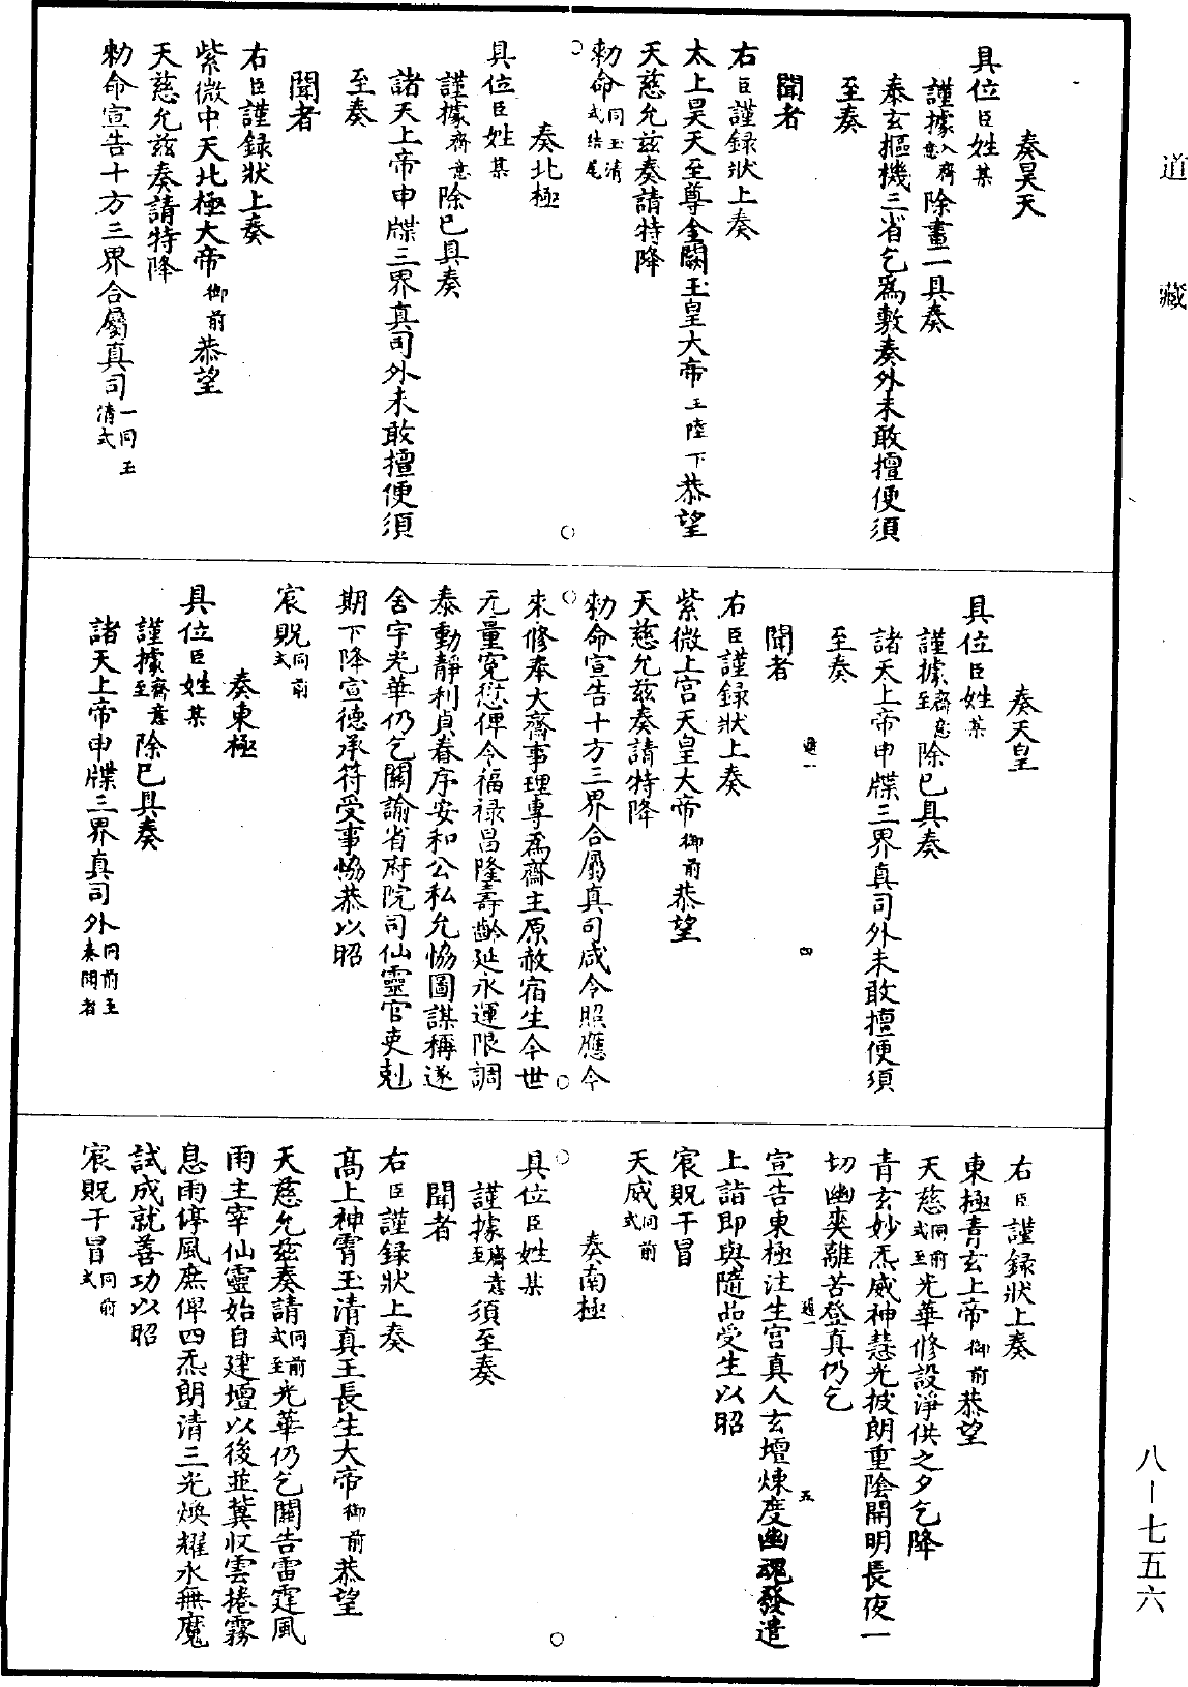 道藏
奏昊天
具位臣姓某
謹據入齋意除畫一具奏
泰玄摳機三省乞爲敷奏外未敢擅便須
至奏
聞者
右臣謹録狀上奏
太上昊天至尊金闕玉皇大帝玉陛下恭望
天慈允兹奏請特降
勑命同玉清式結尾
奏北極
具位臣姓某
謹據齋意除已具奏
諸天上帝申牒三界真司外未敢擅便須
至奏
聞者
右臣謹録狀上奏
紫微中天北極大帝御前恭望
天慈允兹奏請特降
勑命宣告十方三界合屬真司一同玉清式
奏天皇
具位臣姓某
謹據齋意至除已具奏
諸天上帝申牒三界真司外未敢擅便須
至奏
聞者
右臣謹録狀上奏
紫微上宫天皇大帝御前恭望
天慈允兹奏請特降
勑命宣告十方三界合屬真司咸令照應今
來修奉大齋事理專爲齋主原赦宿生今世
无量寃愆俾令福禄昌隆壽齡延永運限調
泰動靜利貞眷序安和公私允恊圖謀稱遂
舍宇光華仍乞關諭省府院司仙靈官吏剋
期下降宣德承符受事恊恭以昭
宸貺同前式
奏東極
具位臣姓某
謹據齋意至除已具奏
諸天上帝申牒三界真司外同前至奏聞者
右臣謹録狀上奏
東極青玄上帝御前恭望
天慈同前式至光華修設淨供之夕乞降
青玄妙炁威神慧光披朗重陰開明長夜一
切幽爽離苦登真仍乞
宣告東極注生宫真人玄壇煉度幽魂發遣
上詣即與隨品受生以昭
宸貺干冒
天威同前式
奏南極
具位臣姓某
謹據齋意至須至奏
聞者
右臣謹録狀上奏
高上神霄玉清真王長生大帝御前恭望
天慈允兹奏請同前式至光華仍乞關告雷霆風
雨主宰仙靈始自建壇以後並冀收雲捲霧
息雨停風庶俾四炁朗清三光煥耀永無魔
試成就善功以昭
宸貺干冒同前式
八－七五六